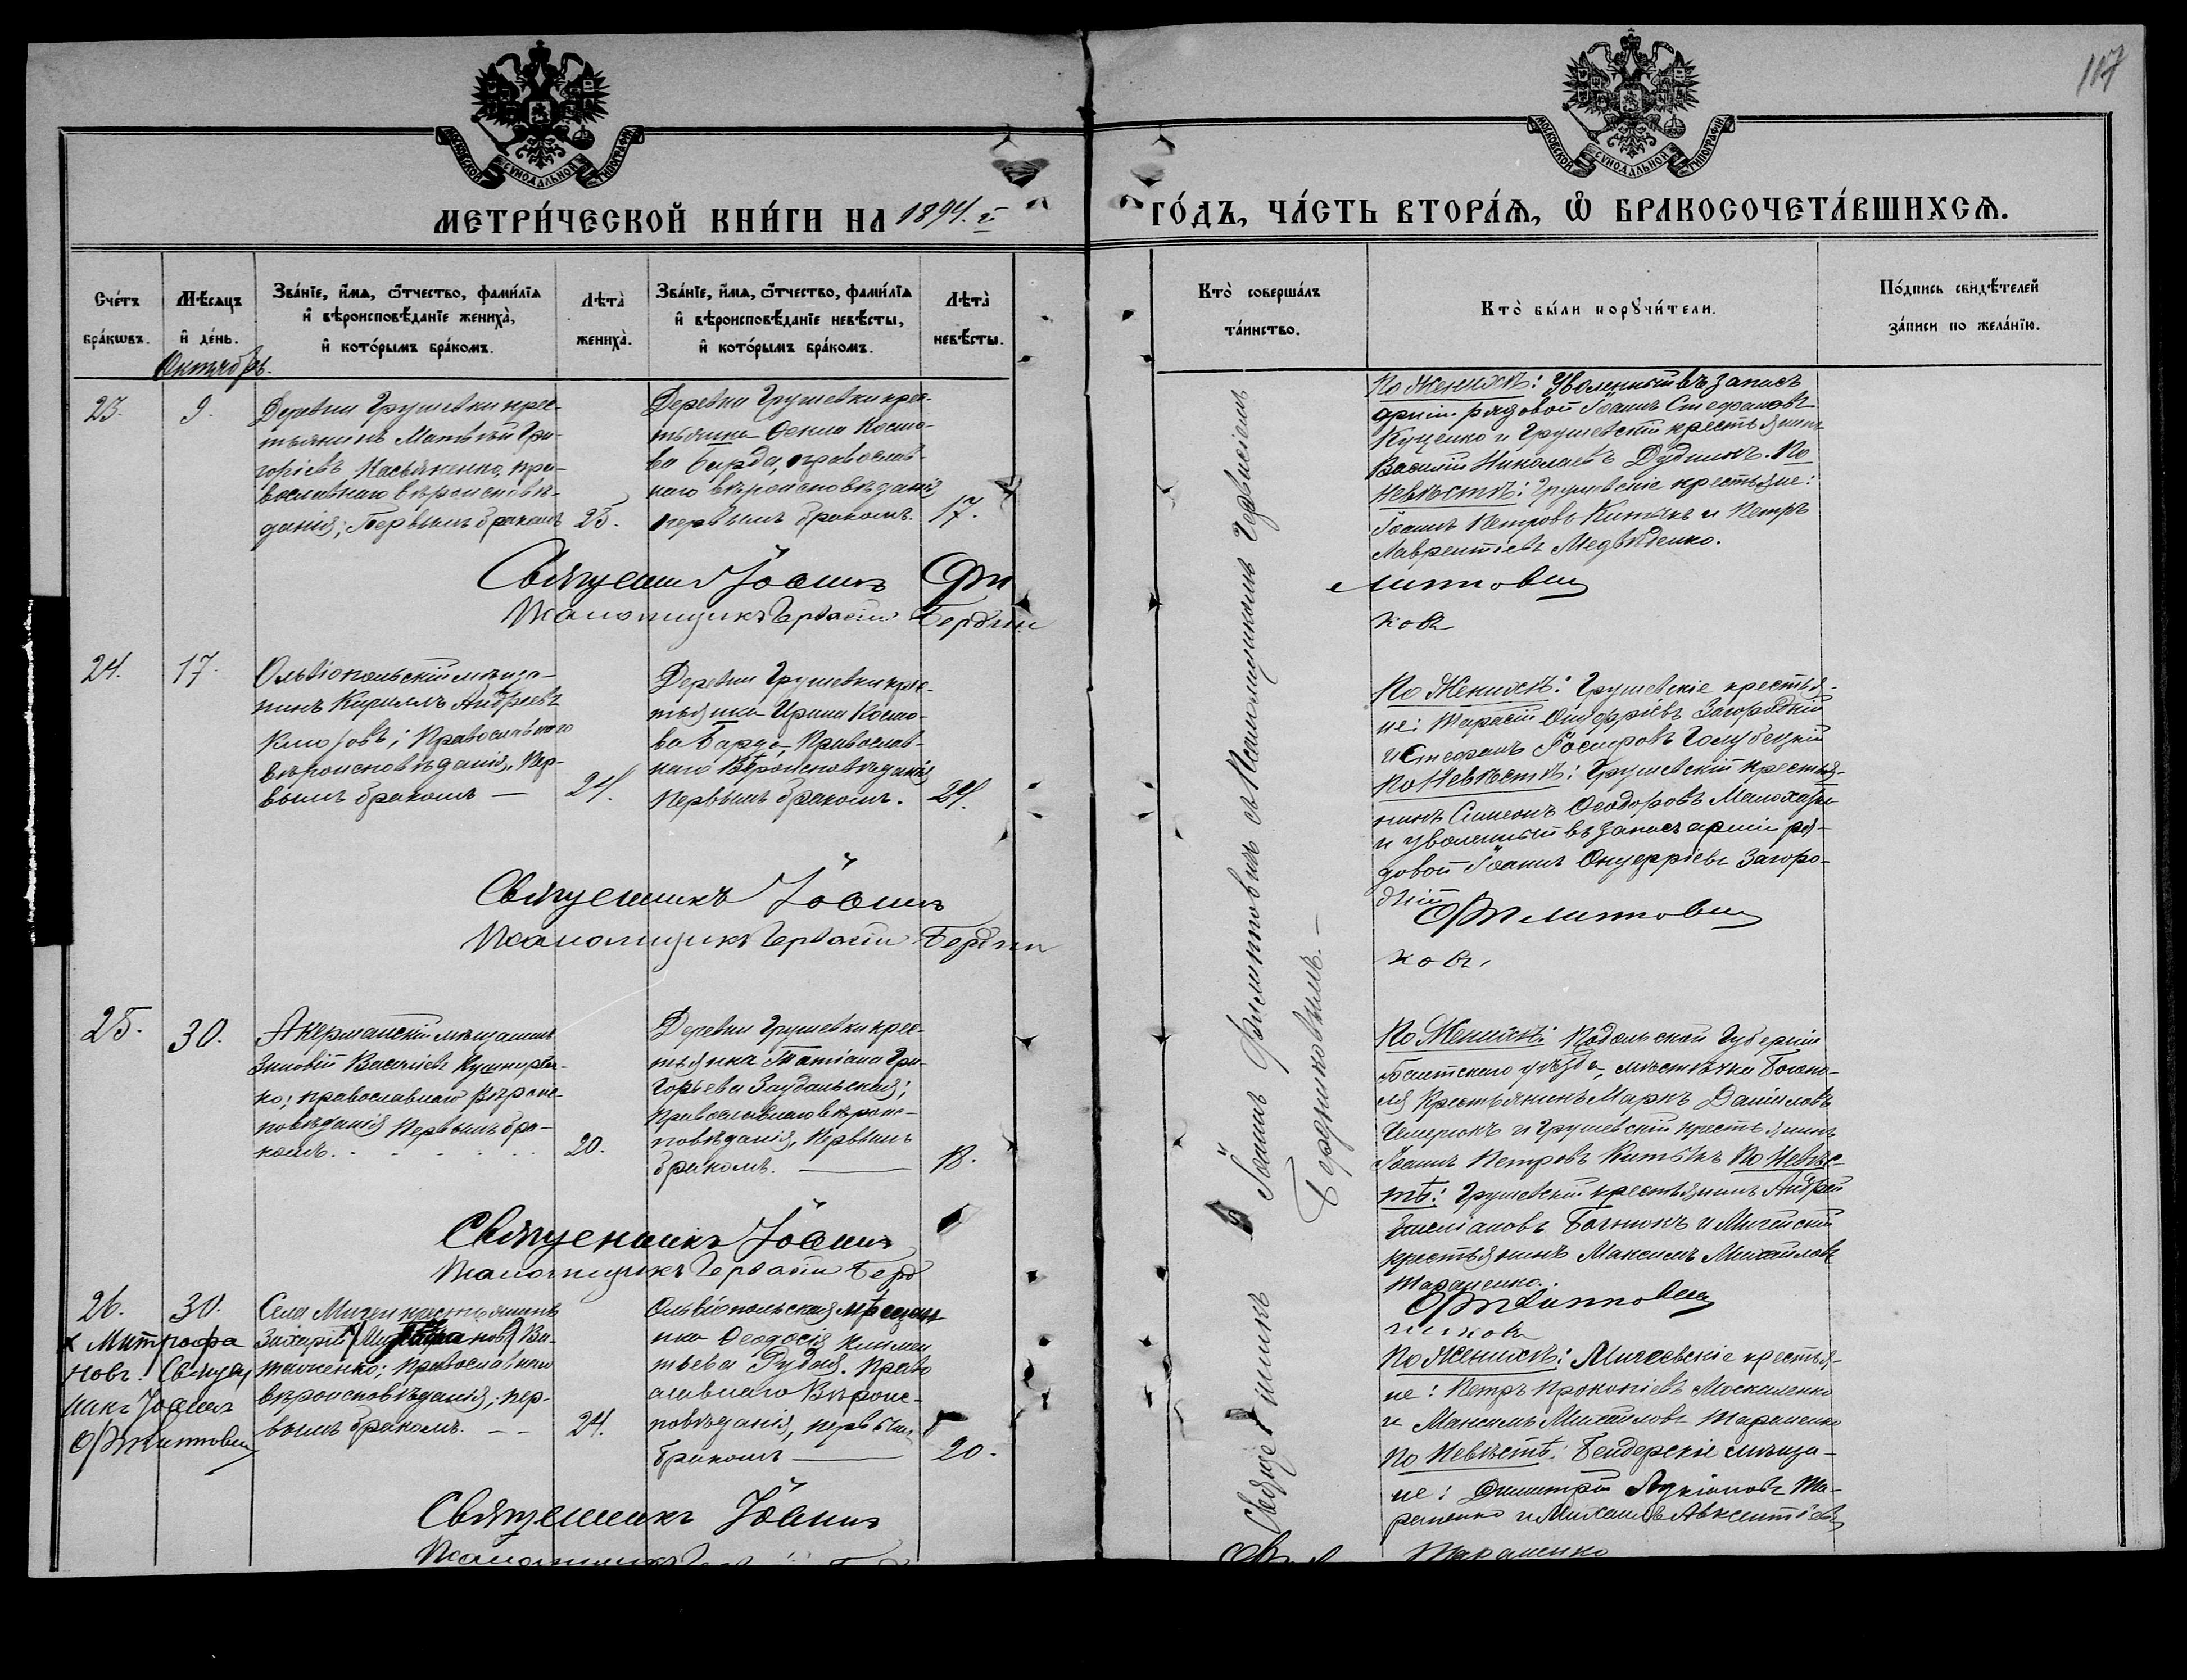 МОСКОВСКОЙ СѴНОДАЛЬНОЙ ТИПОГРАФІИ
МОСКОВСКОЙ СѴНОДАЛЬНОЙ ТИПОГРАФІИ
117
МЕТРИ́ЧЕСКОЙ КНИ́ГИ НА 1894.й
ГО́ДЪ, ЧА́СТЬ ВТОРА́Я, Ѽ БРАКОСОЧЕТА́ВШИХСЯ.
Сче́тъ бра́кѡвъ.
Мѣ́сяцъ и҆ де́нь.
Зва́нїе, и҆́мя, ѻ҆́тчество, фами́лїя
и҆ вѣроисповѣ́данїе жениха̀,
и҆ кото́рымъ бра́комъ.
Лѣта̀ жениха̀.
Зва́нїе, и҆́мя, ѻ҆́тчество, фами́лїя
и҆ вѣроисповѣ́данїе невѣ́сты,
и҆ кото́рымъ бра́комъ.
Лѣта̀ невѣ́сты.
Кто̀ соверша́лъ
та́инство.
Кто̀ бы́ли порꙋчи́тели.
По́дпись свидѣ́телей
за́писи по жела́нїю.
Октябрь.
23.
9.
Деревни Грушевки крес-
тьянинъ Матѳѣй Гри-
горіевъ Касьяненко, пра-
вославнаго вѣроисповѣ-
данія; Первымъ бракомъ
25.
Деревни Грушевки крес-
тьянка Косма-
ва Барда, православ-
наго вѣроисповѣданія
первымъ бракомъ.
17.
По Женихѣ: Уволенный въ запасъ
арміи рядовой Іоаннъ Стефановъ
Куценко и Грушевскій крестьянинъ
Василій Николаевъ Дудникъ. По
Невѣстѣ: Грушевскіе крестьяне:
Іоаннъ Петровъ Китыкъ и Петръ
Лаврентіевъ Медвѣденко.
Священникъ Іоаннъ Филиповичъ
Псаломщикъ Гервасій Бердниковъ
24.
17.
Ольвіопольскій мѣща-
нинъ Кириллъ Андреевъ
православнаго
вѣроисповѣданія, Пер-
вымъ бракомъ —
24.
Деревни Грушевки крес-
тьянка Ирина Косма-
ва Барда, Православ-
наго Вѣроисповѣданія
первымъ бракомъ.
24.
По Женихѣ: Грушевскіе крестья-
не: Тарасій Онуфріевъ Загородній
и Стефанъ Іосифовъ Голубецкій
По Невѣстѣ: Грушевскій крестья-
нинъ Симеонъ Ѳеодоровъ
и уволенный въ запасъ арміи ря-
довой Іоаннъ Онуфріевъ Загоро-
дній
Священникъ Іоаннъ Филиповичъ
Псаломщикъ Гервасій Бердниковъ.
25.
30.
Акерманскій мѣщанинъ
Зиновій Василіевъ Кушнирен-
ко; православнаго Вѣроис-
повѣданія Первымъ бра-
комъ.
20.
Деревни Грушевки крес-
тьянка Татіана Гри-
горьева
Православнаго вѣроис-
повѣданія, Первымъ
бракомъ. —
18.
По Женихѣ: Подольской Губерніи
Балтскаго уѣзда, мѣстечка Богопо-
ля Крестьянинъ Маркъ Даниловъ
и Грушевскій крестьянинъ
Іоаннъ Петровъ Китыкъ По Невѣс-
тѣ: Грушевскій крестьянинъ Андрей
и Мигейскій
крестьянинъ Максимъ Михайловъ
Тараненко.
Священникъ Іоаннъ Филиповичъ
Псаломщикъ Гервасій Бердниковъ
26.
30.
Села Мигеи крестьянинъ
Захарій
православнаго
вѣроисповѣданія; пер-
вымъ бракомъ. — —
24.
х Митрофа
новъ. Священ
никъ Іоаннъ
Филиповичъ
Ольвіопольская мѣщан
ка Ѳеодосія Климен
тьева Рудая. Право
славнаго Вѣроис-
повѣданія, первымъ
бракомъ —
20.
По Женихѣ: Мигеевскіе крестья-
не: Петръ Прокопіевъ Москаленко
и Максимъ Михайловъ Тараненко
По Невѣстѣ: Бендерскіе мѣща-
не: Димитрій Лукіановъ Та-
раненко и Михаилъ Авксентіевъ
Тараненко
Священникъ Іоаннъ
Псаломщикъ
Священникъ Іоаннъ Филиповичъ съ Псаломщикомъ Гервасіемъ
Бердниковымъ. —